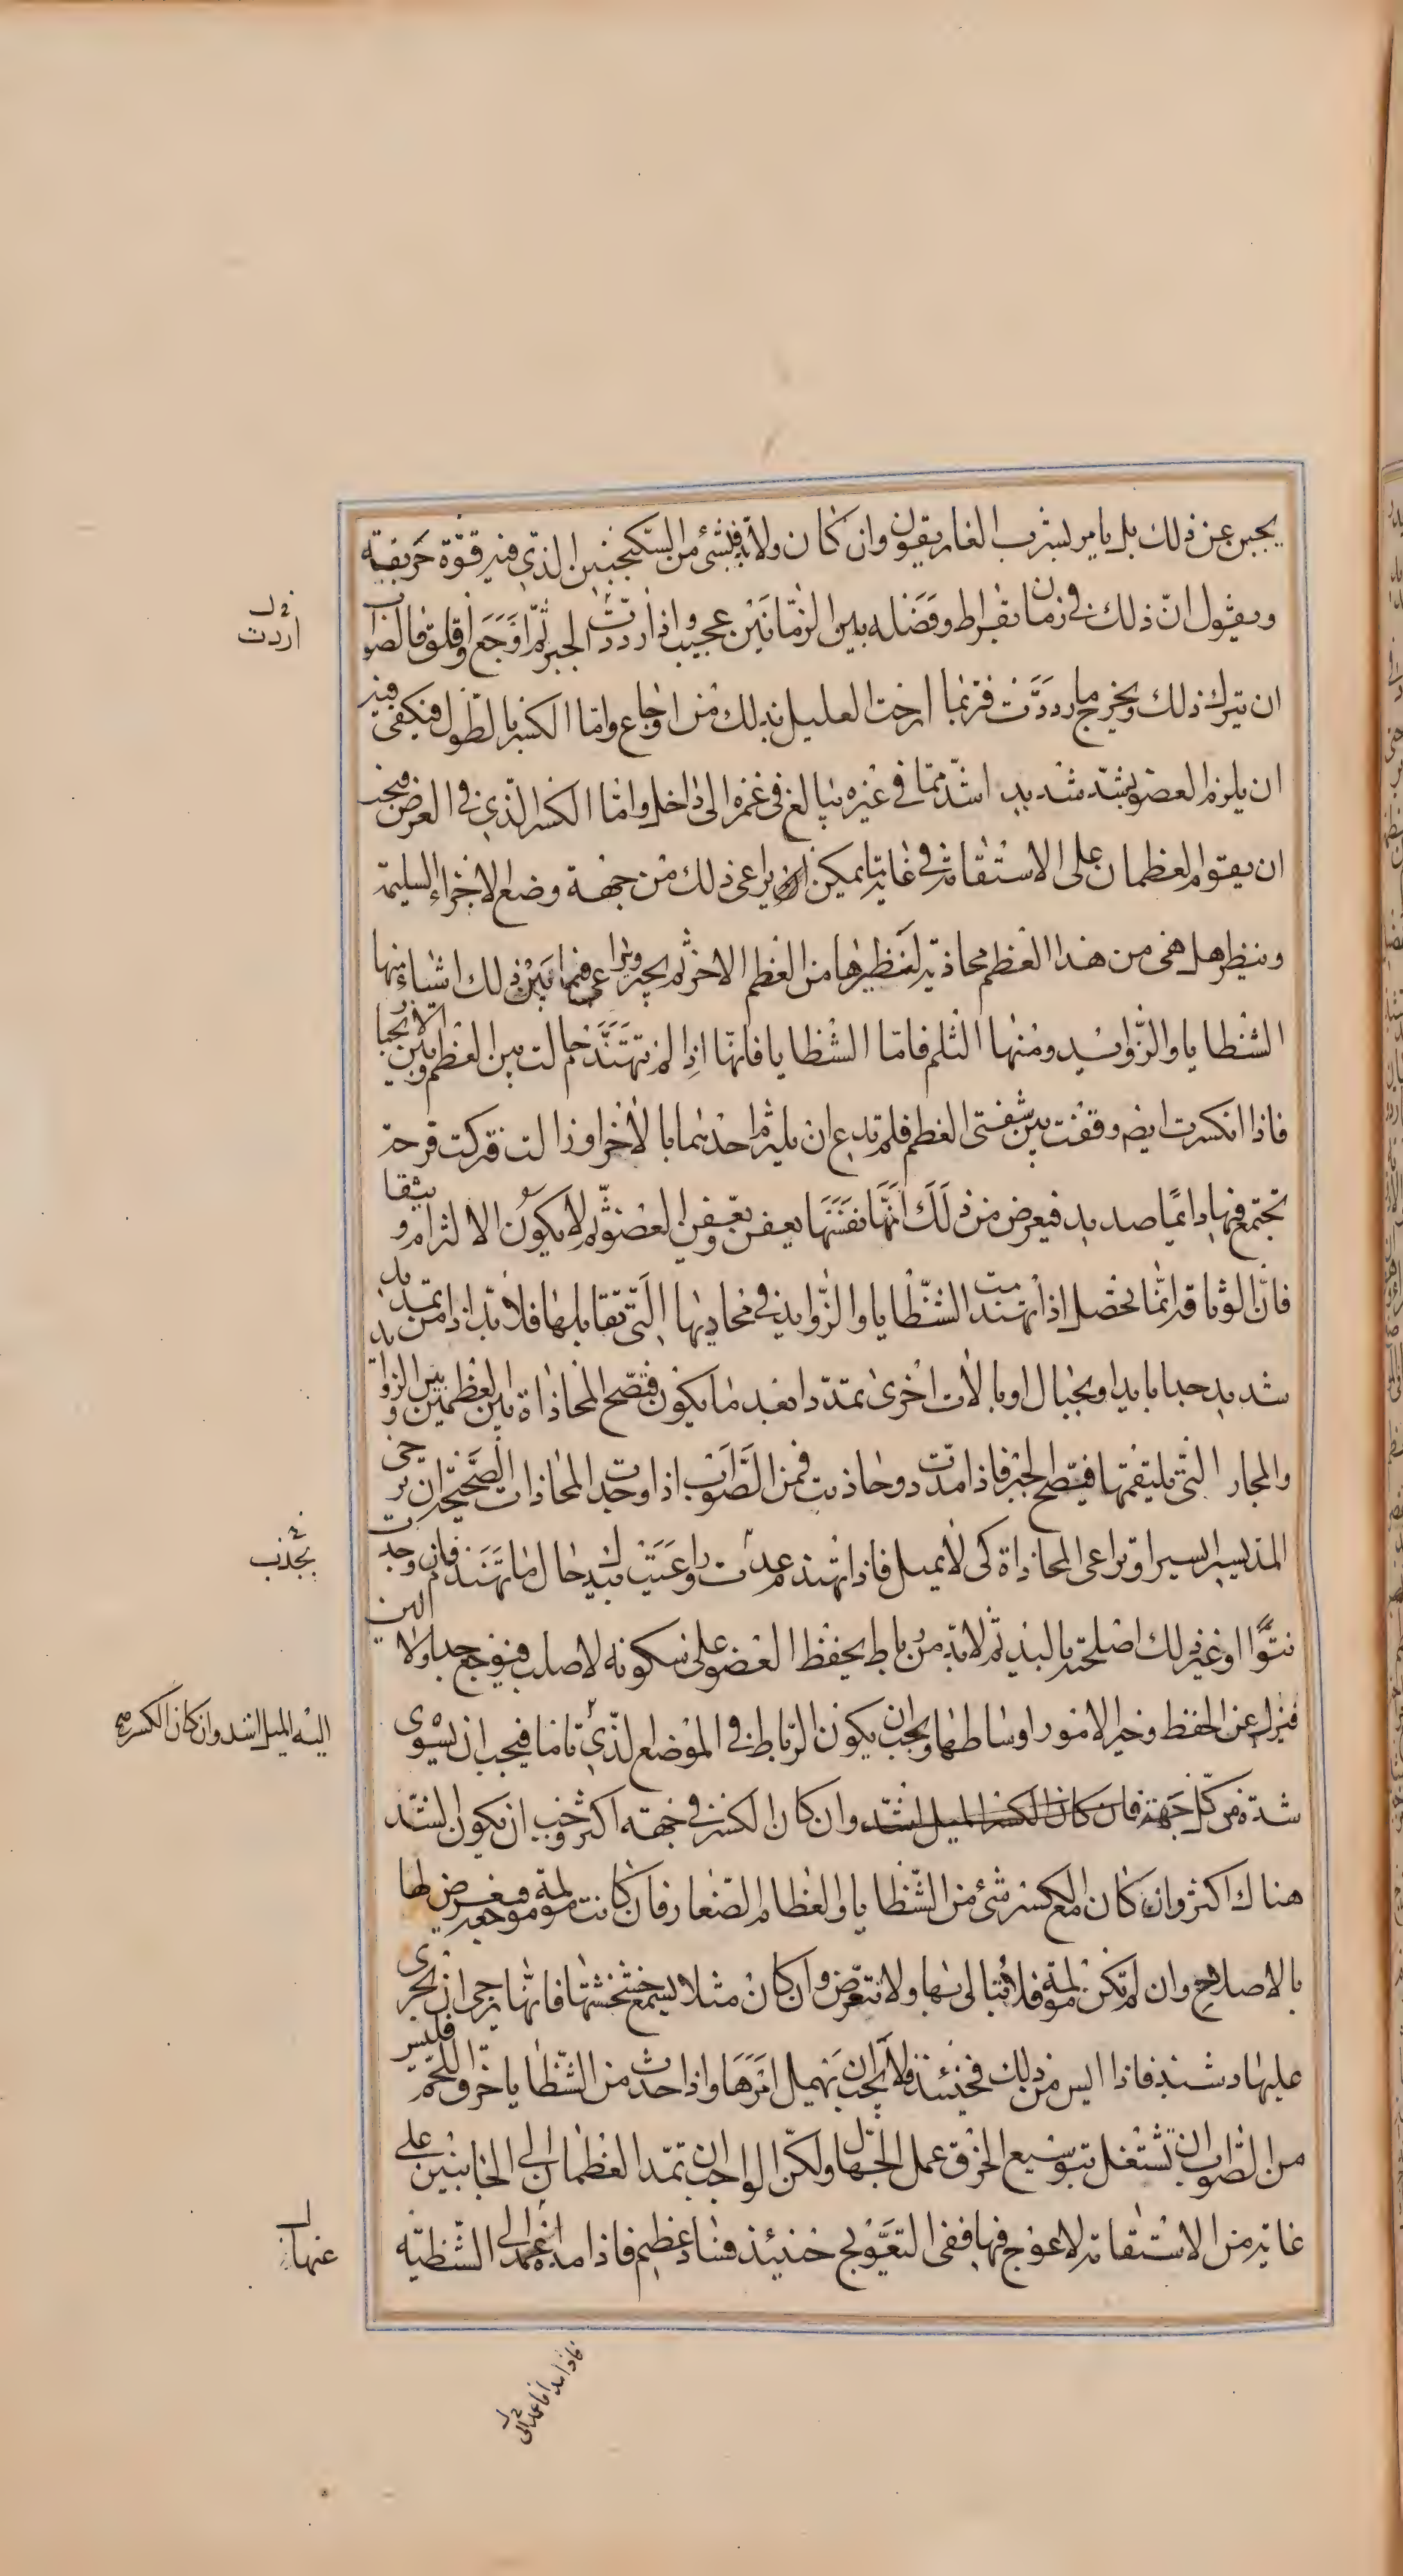 يجبن عن ذلك بل يامر بشرب الغاريقون وان كان ولا بد فبشئ من السكنجبين الذي فيه قوة حريفية
ويقول ان ذلك في زمان بقراط وفضله بين الزمانين عجيب واذا اردت الجبر ثم اوجع واقلق فالصواب
ان يترك ذلك ويخرج ما رددت فربما ارحت العليل بذلك من اوجاع واما الكسر بالطول فيكفي فيه
ان يلزم العضو بشد شديد اشد مما في غيره يبالغ في غمزه الى داخل واما الكسر الذي في العرض فيجب
ان يقوم العظمان على الاستقامة في غاية ما يمكن ان يراعى ذلك من جهة وضع الاجزاء السليمة
وينظر هل هي من هذا العظم محاذية لنظيرها من العظم الاخر ثم يجبر ويراعى فيما بين ذلك اشياء منها
الشظايا والزوايد ومنها الثلم فاما الشظايا فانها اذا لم تهند حالت بين العظم وبين الانجبار
فاذا انكسرت ايضا وقفت بين شفتي العظم فلم تدع ان يلزم احدهما بالاخر او زالت فتركت فرجة
تجتمع فيها دائما صديد فيعرض من ذلك انها نفسها يعفن ويعفن العضو ثم لا يكون الالتزام وثيقا
فان الوثاقة انما تحصل اذا تهندمت الشظايا والزوايد في محاذيها التي تقابلها فلا بد اذا من تمديد
شديد جدا بايد او بحبال او بالات اخرى تمدد ابعد ما يكون فتصح المحاذاة بين العظمين وبين الزوائد
والمجار التي يلتقمها فيصح الجبر فاذا مددت وحاذيت فمن الصواب اذا وجدت المحاذات الصحيحة ان ترخى
المد يسيرا يسيرا وتراعى المحاذاة كي لا يميل فاذا تهندم عدت وراعيت بيدك حال ما تهند فان وجدت
نتوا او غير ذلك اصلحته باليد ثم لا بد من رباط يحفظ العضو على سكونه لا صلب فيوجع جدا ولا الين
فيزل عن الحفظ وخير الامور اوساطها ويجب ان يكون الرباط في الموضع الذي تاما فيجب ان يسوى
شده من كل جهة فان كان الكسر الميل اشد وان كان الكسر في جهة اكثر وجب ان يكون الشد
هناك اكثر وان كان مع الكسر شئ من الشظايا والعظام الصغار فان كانت مولمة موجعة فيعرض لها
بالاصلاح وان لم تكن مولمة فلا تبالى بها ولا تتعرض وان كان مثلا يسمع خشخشتها فانها يرجى ان يجرى
عليها دشبذ فاذا ايس من ذلك فحينئذ فلا يجب ان يهمل امرها واذا حدث من الشظايا خرق اللحم فليس
من الصواب ان تشتغل بتوسيع الخرق عمل الجهال ولكن الواجب ان تمد العظمان الى الجانبين على
غاية من الاستقامة لا عوج فيها ففي التعويج حينئذ فساد عظيم فاذا مده اعمد الى الشظية
اردت
بجذب
اليه الميل اشد وان كان الكسر
عنها
فاذا مد فاعمد الى